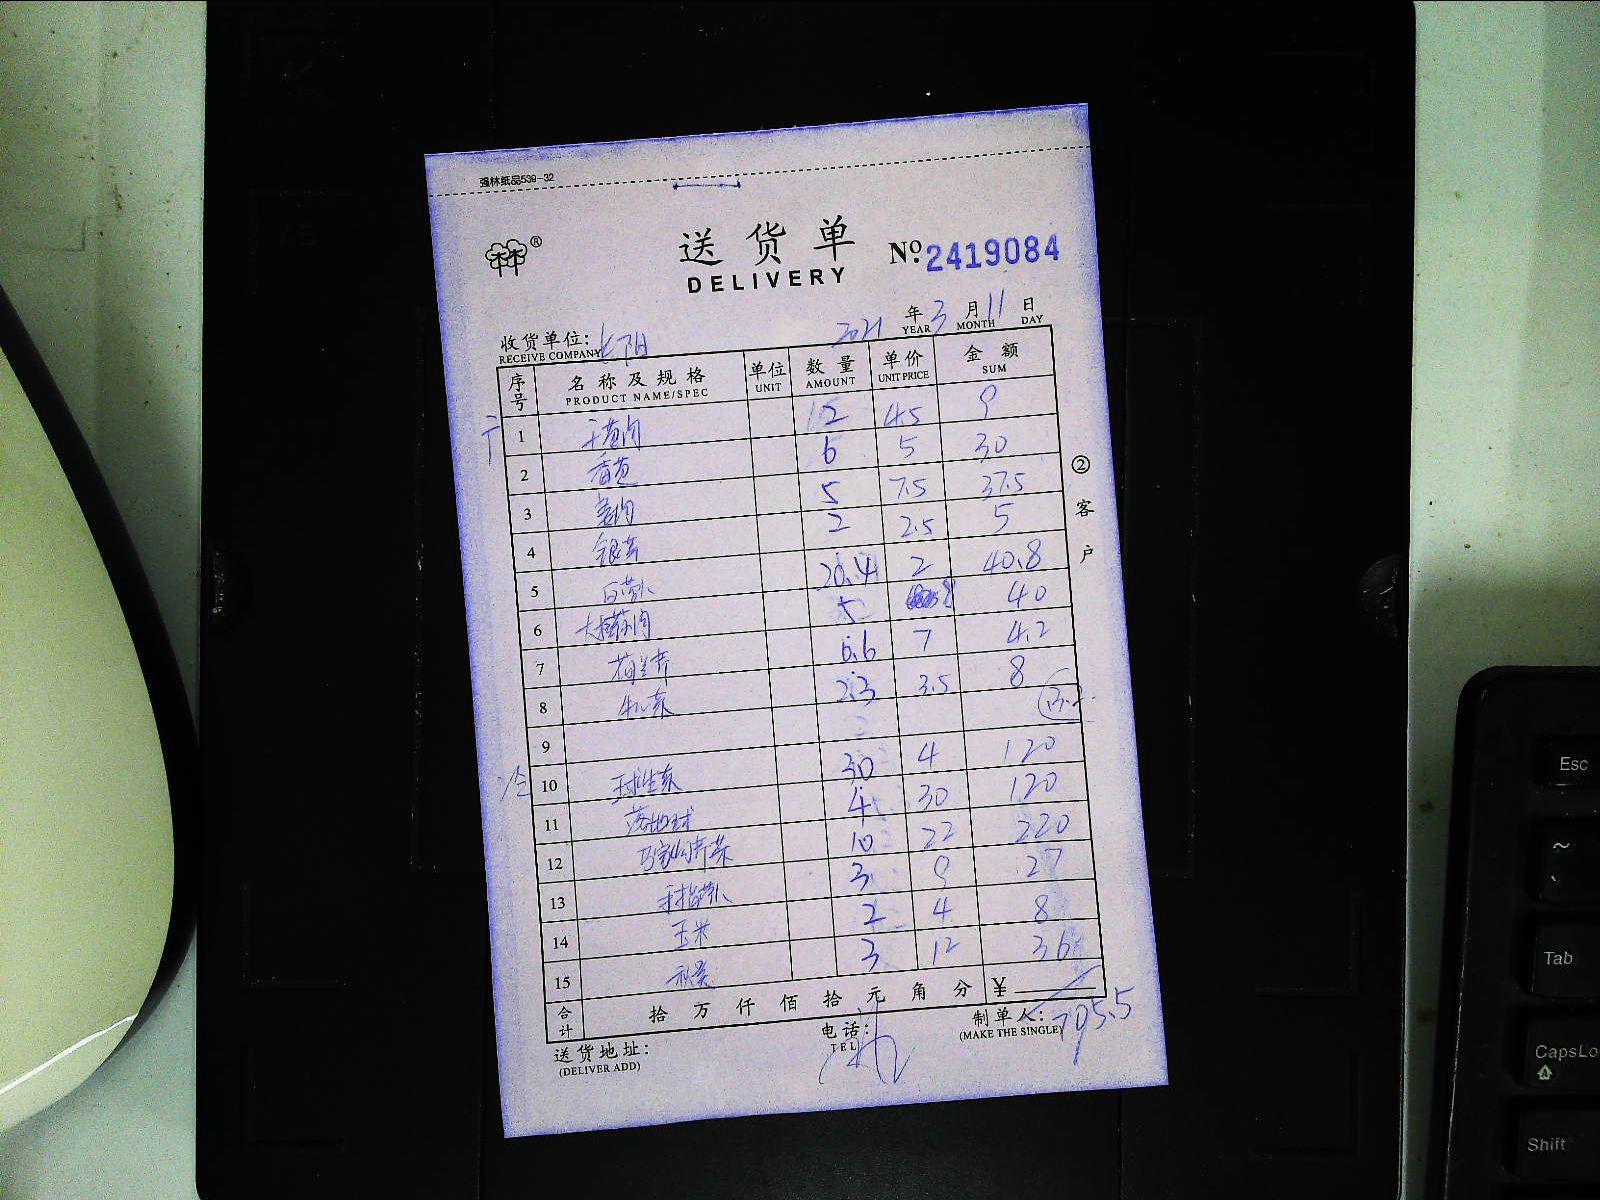 强林纸品539-32
®
送货单
№ 2419084
DELIVERY
2021 年 3 月 11 日
YEAR MONTH DAY
收货单位:
RECEIVE COMPANY
序号 名称及规格 单位 数量 单价 金额
PRODUCT NAME/SPEC UNIT AMOUNT UNIT PRICE SUM
1 干葱肉 2 4.5 9
2 香葱 6 5 30
3 姜肉 5 7.5 37.5
4 银芽 2 2.5 5
5 白萝卜 20.4 2 40.8
6 5 8 40
7 荷兰芹 0.6 7 4.2
8 2.3 3.5 8
9
10 球生菜 30 4 120
11 4 30 120
12 10 22 220
13 手指萝卜 3 9 27
14 玉米 2 4 8
15 秋葵 3 12 36
合计 拾 万 仟 佰 拾 元 角 分 ¥
705.5
②客户
送货地址:
(DELIVER ADD)
电话:
TEL
制单人:
(MAKE THE SINGLE)
Esc
~
Tab
CapsLo
Shift